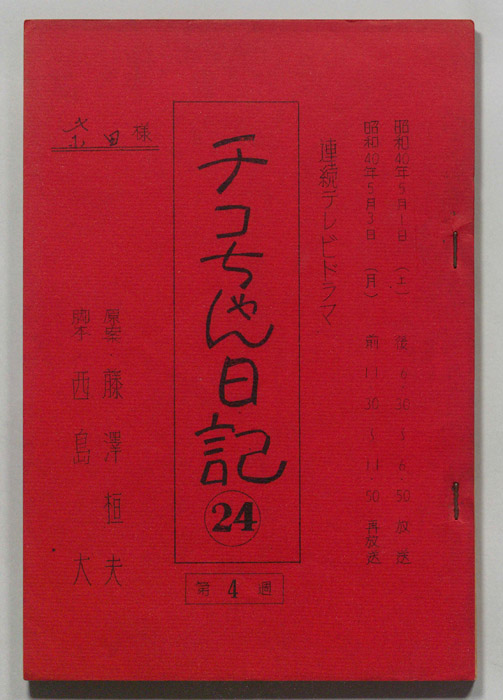 昭和40年5月1日(土)後6.30〜6.50放送
昭和40年5月3日(月)前11.30〜11.50再放送
連続テレビドラマ
チコちゃん日記
24
第4週
原案 藤澤桓夫
脚本 西島大
柴田様